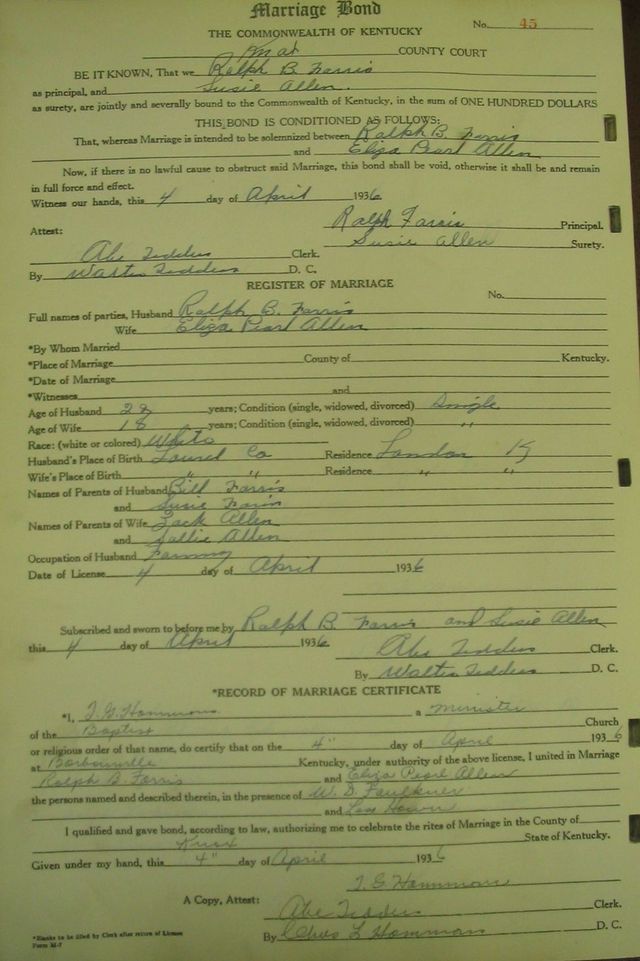 Marriage Bond
No. 45
THE COMMONWEALTH OF KENTUCKY
Knox COUNTY COURT
BE IT KNOWN, That we Ralph B. Farris
as principal, and Susie Allen.
as surety, are jointly and severally bound to the Commonwealth of Kentucky, in the sum of ONE HUNDRED DOLLARS
THIS BOND IS CONDITIONED AS FOLLOWS:
That, whereas Marriage is intended to be solemnized between Ralph B. Farris
and Eliza Pearl Allen
Now, if there is no lawful cause to obstruct said Marriage, this bond shall be void, otherwise it shall be and remain
in full force and effect.
Witness our hands, this 4 day of April 1936
Ralph Farris Principal.
Attest: Susie Allen Surety.
Abe Tedders Clerk.
By Walter Tedders D. C.
REGISTER OF MARRIAGE
No.
Full names of parties, Husband Ralph B. Farris
Wife Eliza Pearl Allen
*By Whom Married
*Place of Marriage County of Kentucky.
*Date of Marriage
*Witnesses and
Age of Husband 28 years; Condition (single, widowed, divorced) Single
Age of Wife 18 years; Condition (single, widowed, divorced) "
Race: (white or colored) White
Husband's Place of Birth Laurel Co Residence London Ky
Wife's Place of Birth " " Residence " "
Names of Parents of Husband Bill Farris
and Susie Farris
Names of Parents of Wife Zack Allen
and Sallie Allen
Occupation of Husband Farming
Date of License 4 day of April 1936
Subscribed and sworn to before me by Ralph B. Farris and Susie Allen
this 4 day of April 1936 Abe Tedders Clerk.
By Walter Tedders D. C.
*RECORD OF MARRIAGE CERTIFICATE
*I, T. G. Hammons a Minister
of the Baptist Church
or religious order of that name, do certify that on the 4" day of April 1936
at Barbourville Kentucky, under authority of the above license, I united in Marriage
Ralph B Farris and Eliza Pearl Allen
the persons named and described therein, in the presence of W. D. Faulkner
and
I qualified and gave bond, according to law, authorizing me to celebrate the rites of Marriage in the County of
Knox State of Kentucky.
Given under my hand, this 4" day of April 1936
T. G. Hammons
A Copy, Attest: Abe Tedders Clerk.
By Chas L Hammons D. C.
*Blanks to be filled by Clerk after return of License
Form M-7